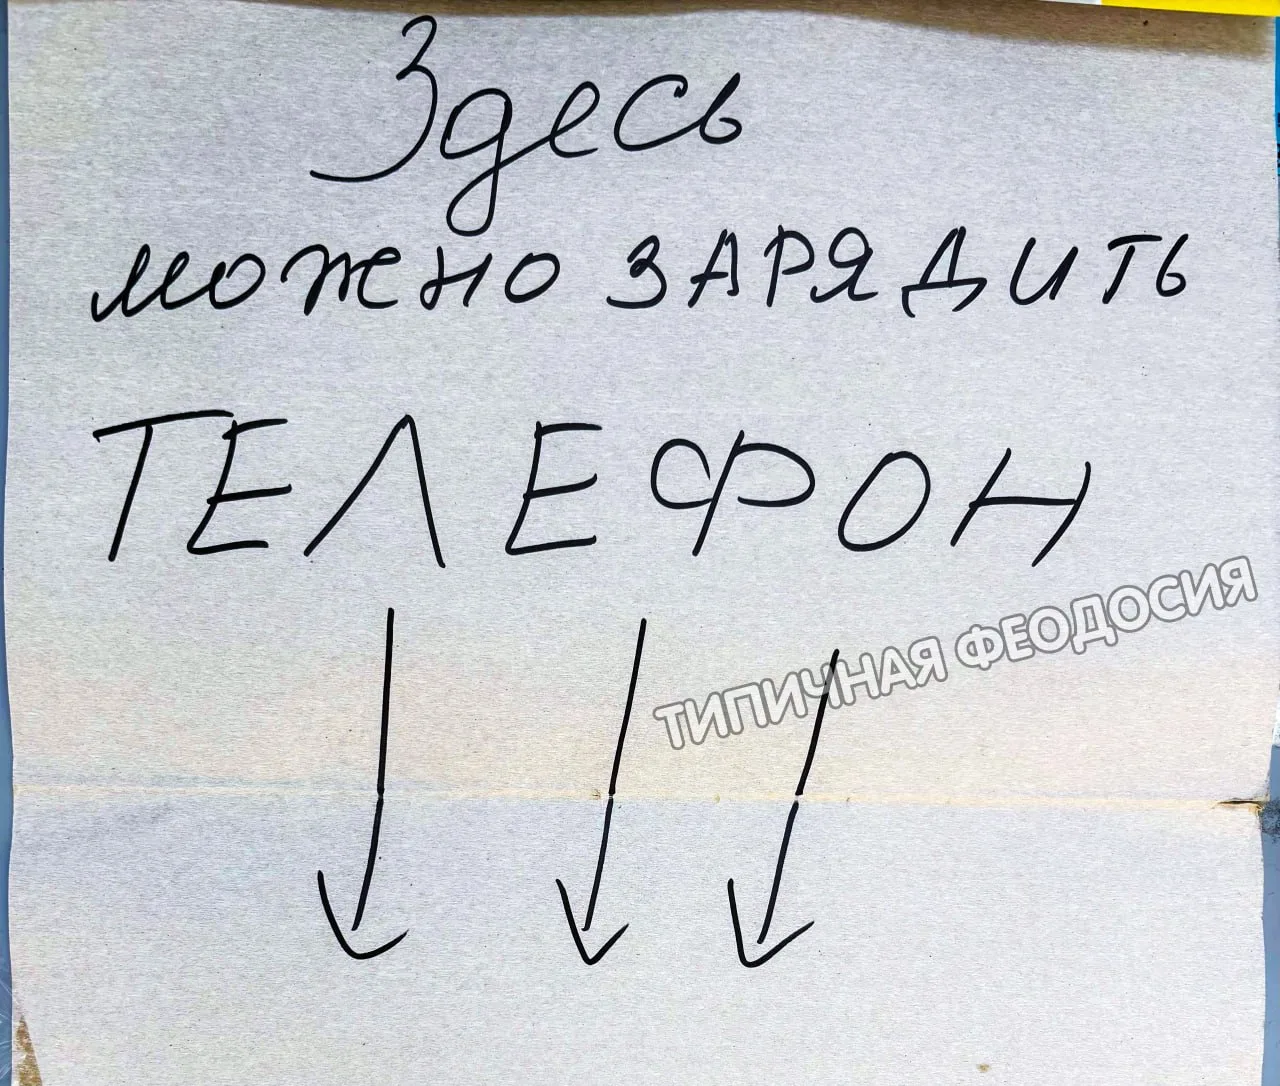 Здесь
можно ЗАРЯДИТЬ
ТЕЛЕФОН
ТИПИЧНАЯ ФЕОДОСИЯ